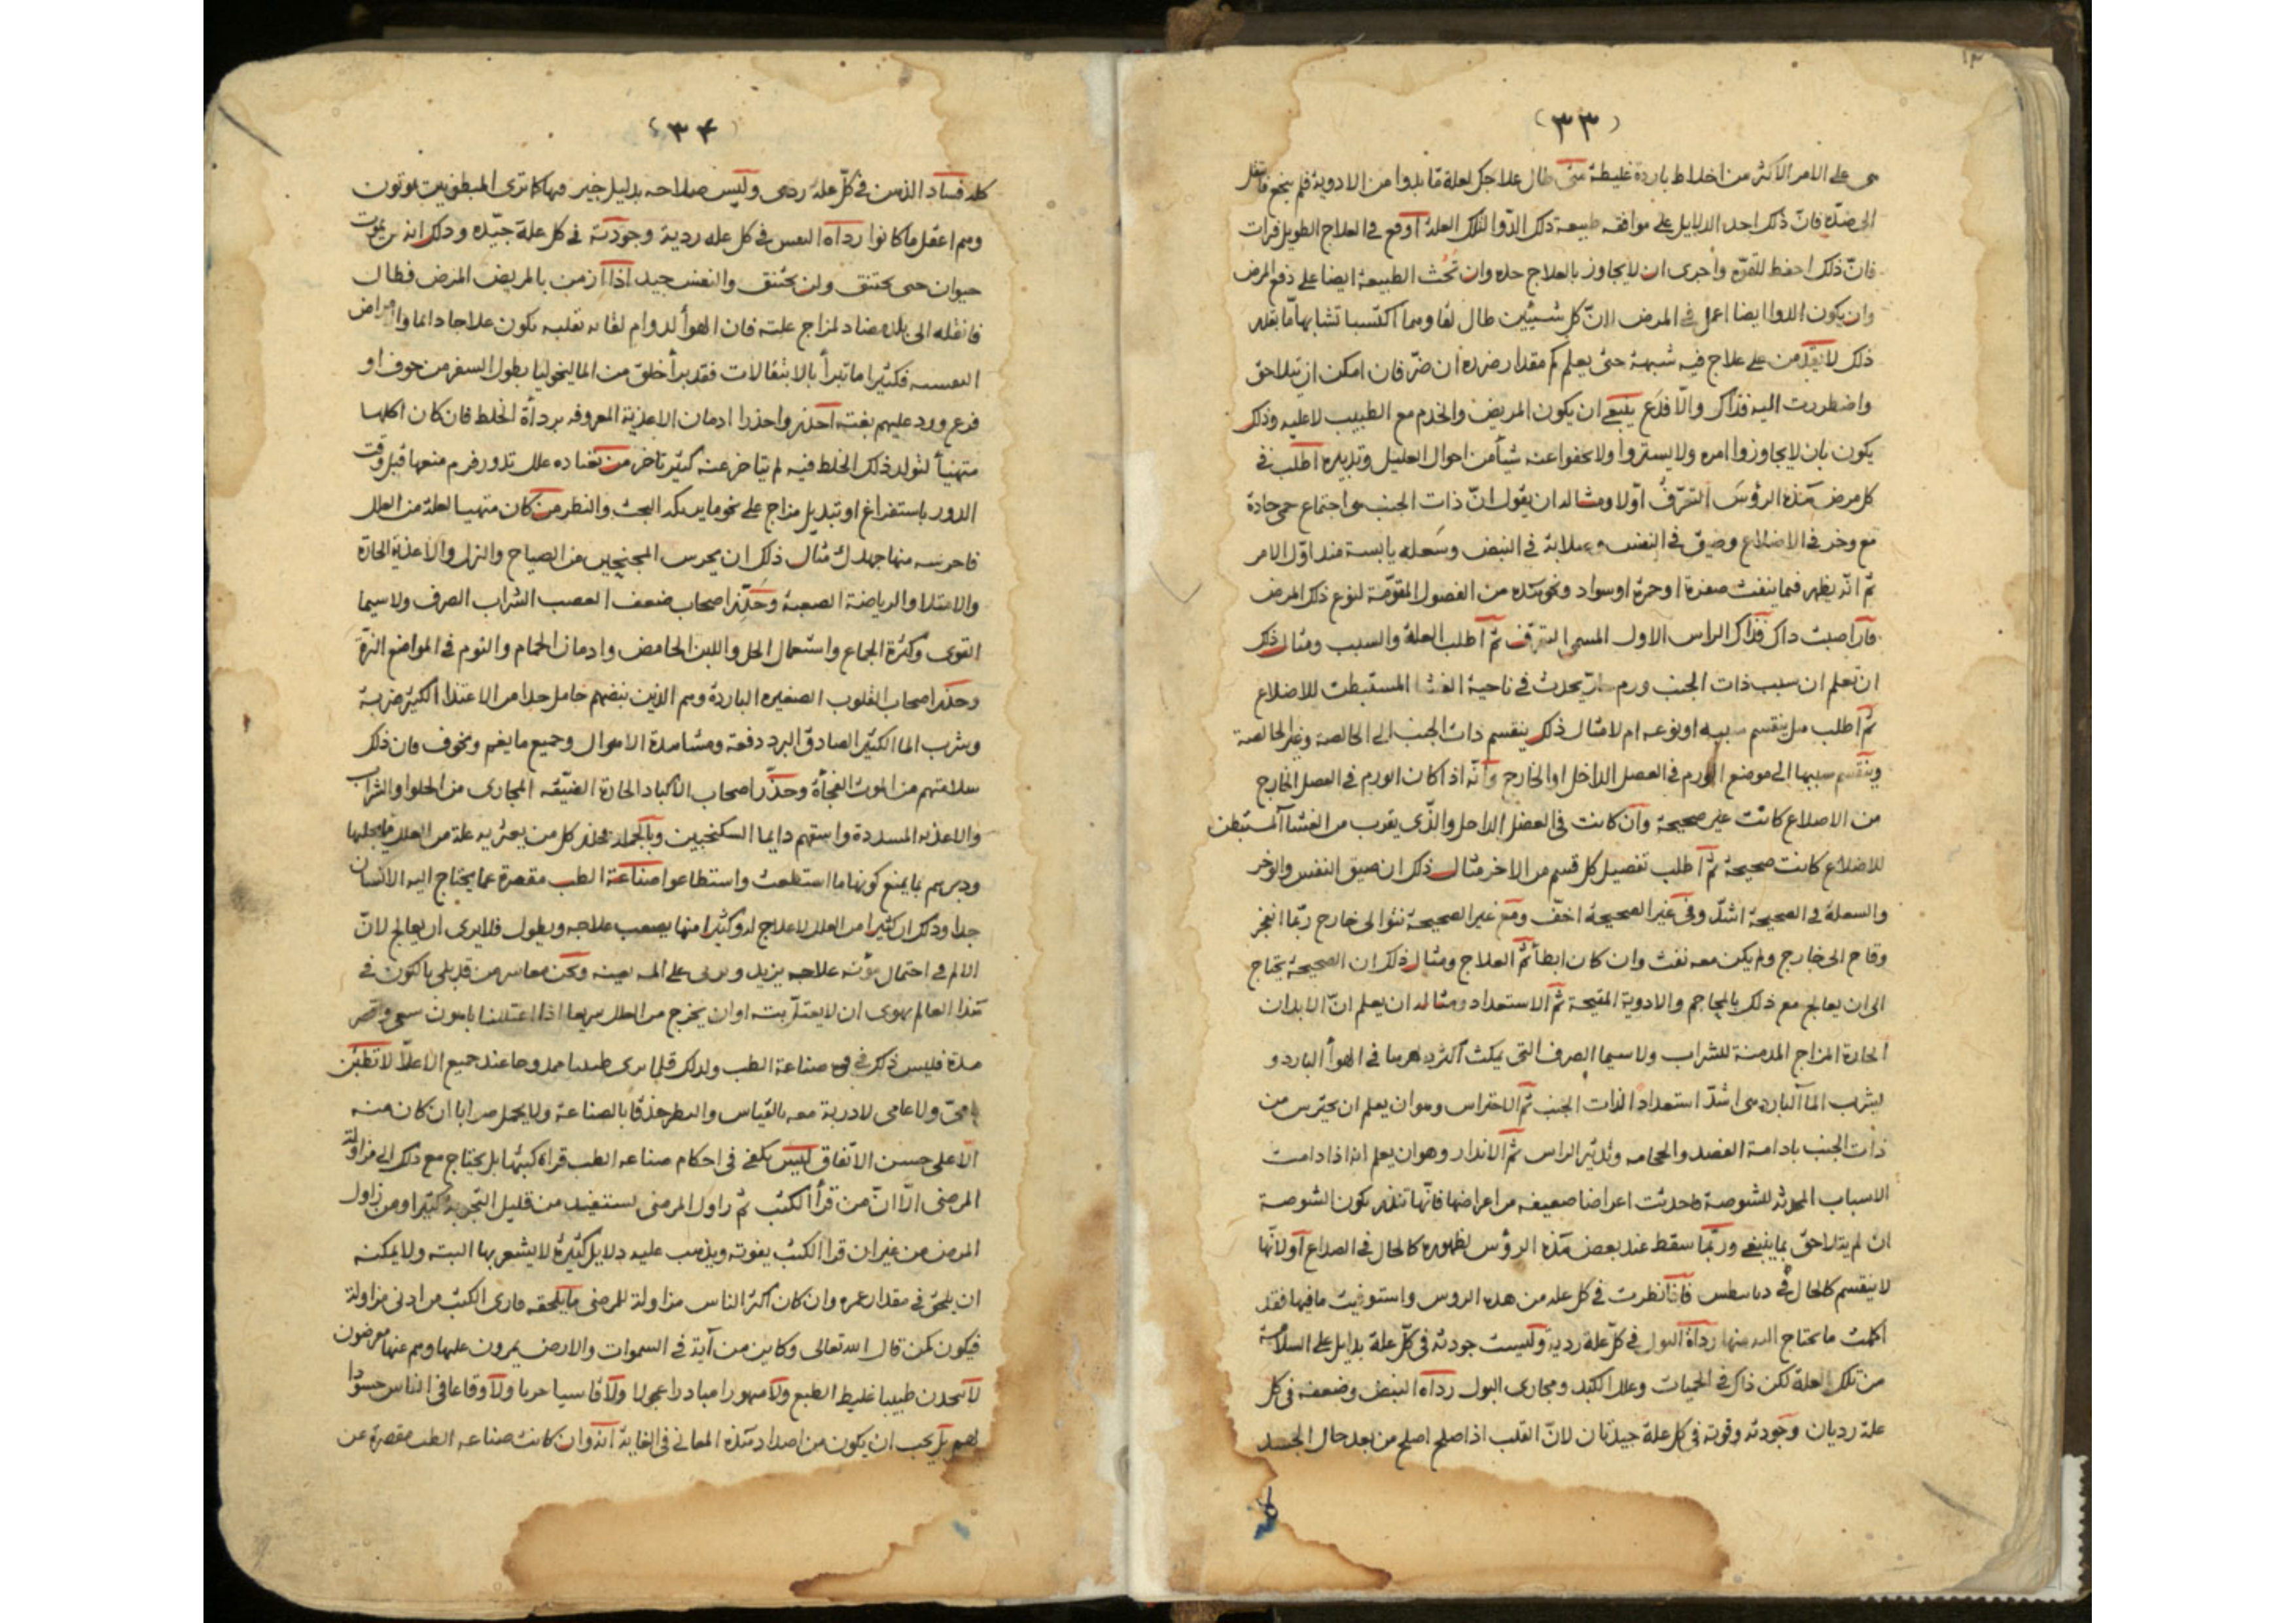 (٣٣)
هى على الامر الاكثر من اخلاط باردة غليظة متى طال علاجك لعلة ما بدوا من الادوية فلم ينجع فانتقل
الى ضده فان ذلك احد الدلايل على موافقه طبيعة ذلك الدوا لتلك العلة اوقع فى العلاج الطويل فترات
فان ذلك احفظ للقوه واجرى ان لا يجاوز بالعلاج حده وان تحث الطبيعة ايضا على دفع المرض
وان يكون الدوا ايضا اعمل فى المرض لان كل شيئين طال لقاوهما اكتسبا تشابها ما بقدر
ذلك لا تقدمن على علاج فيه شبهة حتى يعلم كم مقدار ضرره ان ضر فان امكن ان يتلاحق
واضطررت اليه فذاك والا فدع ينبغى ان يكون المريض والخدم مع الطبيب لا عليه وذلك
يكون بان لا يجاوزوا امره ولا يستروا ولا يخفوا عنه شيأ من احوال العليل وتدبيره اطلب فى
كل مرض هذه الرؤس التعرف اولا ومثاله ان يقول ان ذات الجنب هى اجتماع حمى حادة
مع وخز فى الاضلاع وضيق فى النفس وصلابة فى النبض وسعله يابسة منذ اول الامر
ثم انه يظهر فيما ينفث صفرة او حمرة او سواد ونحو هذه من الفصول المقومة لنوع ذلك المرض
فان اصبت ذاك فذاك الراس الاول المسمى التعرف ثم اطلب العلة والسبب ومثال ذلك
ان تعلم ان سبب ذات الجنب ورم حار يحدث فى ناحية الغشا المستبطن للاضلاع
ثم اطلب هل ينقسم سببه او نوعه ام لا مثال ذلك ينقسم ذات الجنب الى الخالصة وغير الخالصة
وينقسم سببها الى موضع الورم فى العضل الداخل او الخارج وانه اذا كان الورم فى العضل الخارج
من الاضلاع كانت غير صحيحة وان كانت فى العضل الداخل والذى يقرب من الغشا المستبطن
للاضلاع كانت صحيحة ثم اطلب تفصيل كل قسم من الاخر مثال ذلك ان ضيق النفس والوخز
والسعلة فى الصحيحة اشد وفى غير الصحيحة اخف ومع غير الصحيحة نتؤ الى خارج ربما انفجر
وقاح الى خارج ولم يكن معه نفث وان كان ابطأ ثم العلاج ومثال ذلك ان الصحيحة يحتاج
الى ان يعالج مع ذلك بالمحاجم والادوية المقيحة ثم الاستعداد ومثاله ان يعلم ان الابدان
الحارة المزاج المدمنة للشراب ولا سيما الصرف التى يمكث اكثر دهرها فى الهوأ البارد و
يشرب الما البارد هى اشد استعدادا لذات الجنب ثم الاحتراس وهو ان يعلم ان يحترس من
ذات الجنب بادامة الفصد والحجامه وتدثير الراس ثم الانذار وهو ان يعلم انه اذا دامت
الاسباب المحدثه للشوصة فاحدثت اعراضا ضعيفه من اعراضها فانها تنذر بكون الشوصة
ان لم يتلاحق بما ينبغى وربما سقط عند بعض هذه الرؤس لظهوره كالحال فى الصداع او لانها
لا ينقسم كالحال فى دياسطس فاذا نظرت فى كل عله من هذه الروس واستوفيت ما فيها فقد
اكملت ما يحتاج اليه منها رداة البول فى كل علة ردية وليست جودته فى كل علة بدليل على السلامة
من تلك العلة لكن ذاك فى الحميات وعلل الكبد ومجارى البول رداه النبض وضعفه فى كل
علة رديان وجودته وقوته فى كل علة جيدتان لان القلب اذا صلح اصلح من بعد حال الجسد
(٣٤)
كله فساد الذهن فى كل علة ردى وليس صلاحه بدليل خير فيها كما ترى المبطونين يموتون
وهم اعقل ما كانوا رداه النفس فى كل عله ردية وجودته فى كل علة جيده وذلك انه لن يموت
حيوان حتى يختنق ولن يختنق والنفس جيد اذا ازمن بالمريض المرض فطال
فانقله الى بلد مضاد لمزاج علته فان الهوأ لدوام لقائه تقلبه يكون علاجا دائما والامراض
النفسيه فكثيرا ما تبرأ بالانتقالات فقد برأ خلق من الماليخوليا بطول السفر من خوف او
فزع ورد عليهم بغته احذر واحذرا ادمان الاغذية المعروفه برداة الخلط فان كان اكلها
متهيئا لتولد ذلك الخلط فيه لم يتاخر عنه كثير تاخر من تعتاده علل تدور فرم منعها قبل وقت
الدور باستفراغ او تبديل مزاج على نحو ما يدلك البحث والنظر من كان متهيا لعلة من العلل
فاحرسه منها جهدك مثال ذلك ان يحرس المجنبين من الصياح والنزل والاغذية الحارة
والامتلا والرياضة الصعبة وحذر اصحاب ضعف العصب الشراب الصرف ولا سيما
القوى وكثرة الجماع واستعمال الخل واللبن الحامض وادمان الحمام والنوم فى المواضع النزة
وحذر اصحاب القلوب الصغيره الباردة وهم الذين نبضهم خامل جدا من الاغتذا الكثير ضربة
وشرب الما الكثير الصادق البرد دفعة ومشاهدة الاهوال وجميع ما يغم ويخوف فان ذلك
سلامتهم من الموت الفجأة وحذر اصحاب الاكباد الحارة الضيقه المجارى من الحلوا والشراب
والاغذيه المسددة واسقهم دايما السكنجبين وبالجمله فحذر كل من يعتريه علة من العلل ما يجلبها
ودبرهم بما يمنع كونها ما استطعت واستطاعوا صناعة الطب مقصرة عما يحتاج اليه الانسان
جدا وذلك ان كثيرا من العلل لا علاج له وكثيرا منها يصعب علاجه ويطول فلا يرى ان يعالج لان
الالم فى احتمال مؤنه علاجه يزيد ويربى على المه بعينه ونحن معاشر من قد بلى بالكون فى
هذا العالم يهوى ان لا يعتل بته او ان يخرج من العلل سريعا اذا اعتللنا باهون سعى واقصر
مدة فليس ذلك فى صناعة الطب ولذلك قلما يرى طبيبا ممدوحا عند جميع الاعلا لا تطمئن
ولا عامى لا دربة معه بالقياس والنظر حذقا بالصناعة ولا يحمل صرابا ان كان منه
الا على حسن الاتفاق ليس يكفى فى احكام صناعه الطب قراة كتبها بل يحتاج مع ذلك الى مزاولة
المرضى الا ان من قرأ الكتب ثم زاول المرضى يستفيد من قليل التجربة كثيرا ومن زاول
المرضى من غير ان قرا الكتب يفوته ويذهب عليه دلايل كثيرة لا يشعر بها البته ولا يمكنه
ان يلحق فى مقدار عمره وان كان اكثر الناس مزاولة للمرضى ما يلحقه قارى الكتب من ادنى مزاولة
فيكون كمن قال الله تعالى وكاين من آية فى السموات والارض يمرون عليها وهم عنها معرضون
لا تتخذن طبيبا غليظ الطبع ولا متهورا مبادرا عجولا ولا قاسيا حربا ولا وقاعا فى الناس حسودا
لهم بل يجب ان يكون من اضداد هذه المعانى فى الغاية انه وان كانت صناعه الطب مقصرة عن